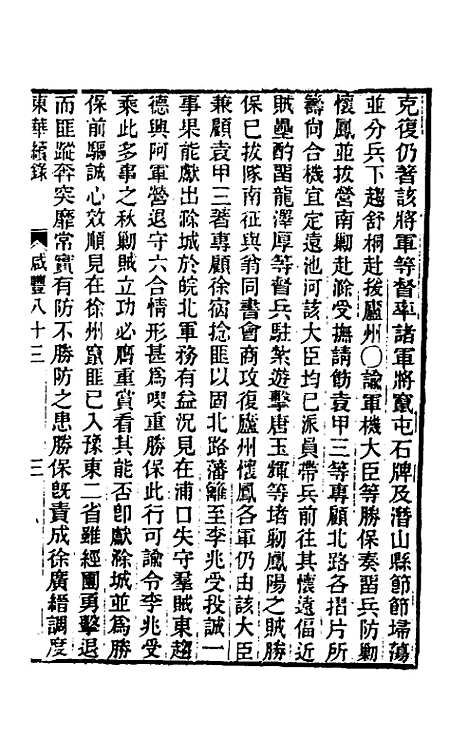 克復仍著該將軍等督率諸軍將竄屯石牌及潛山縣節節埽蕩
並分兵下趨舒桐赴援廬州〇諭軍機大臣等勝保奏畱兵防勦
懷鳳並拔營南勦赴滁受撫請飭袁甲三等專顧北路各摺片所
籌尚合機宜定遠池河該大臣均已派員帶兵前往其懷遠偪近
賊壘酌畱龍澤厚等督兵駐紮遊擊唐玉輝等堵勦鳳陽之賊勝
保已拔隊南征與翁同書會商攻復廬州懷鳳各軍仍由該大臣
兼顧袁甲三著專顧徐宿捻匪以固北路藩籬至李兆受投誠一
事果能獻出滁城於皖北軍務有益況見在浦口失守羣賊東趨
德興阿軍營退守六合情形甚爲喫重勝保此行可諭令李兆受
乘此多事之秋勦賊立功必膺重賞看其能否卽獻滁城並爲勝
保前驅誠心效順見在徐州竄匪已入豫東二省雖經團勇擊退
而匪蹤奔突靡常實有防不勝防之患勝保旣責成徐廣縉調度
東華續錄 咸豐八十三 三